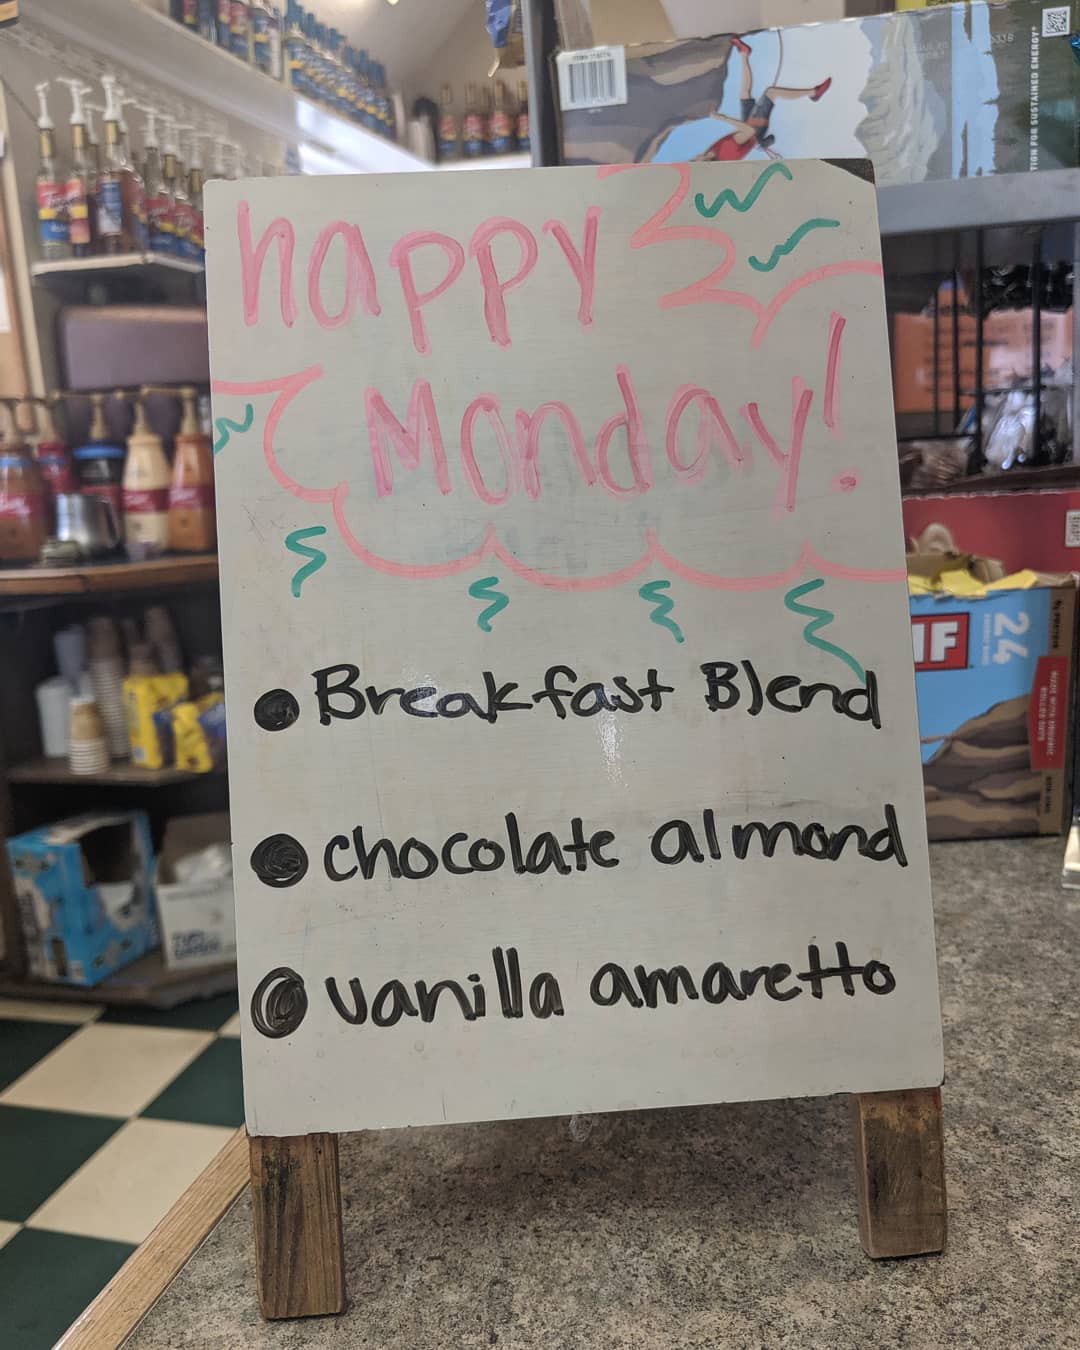 happy
Monday!
Breakfast Blend
chocolate almond
vanilla amaretto
TION FOR SUSTAINED ENERGY®
IF
24